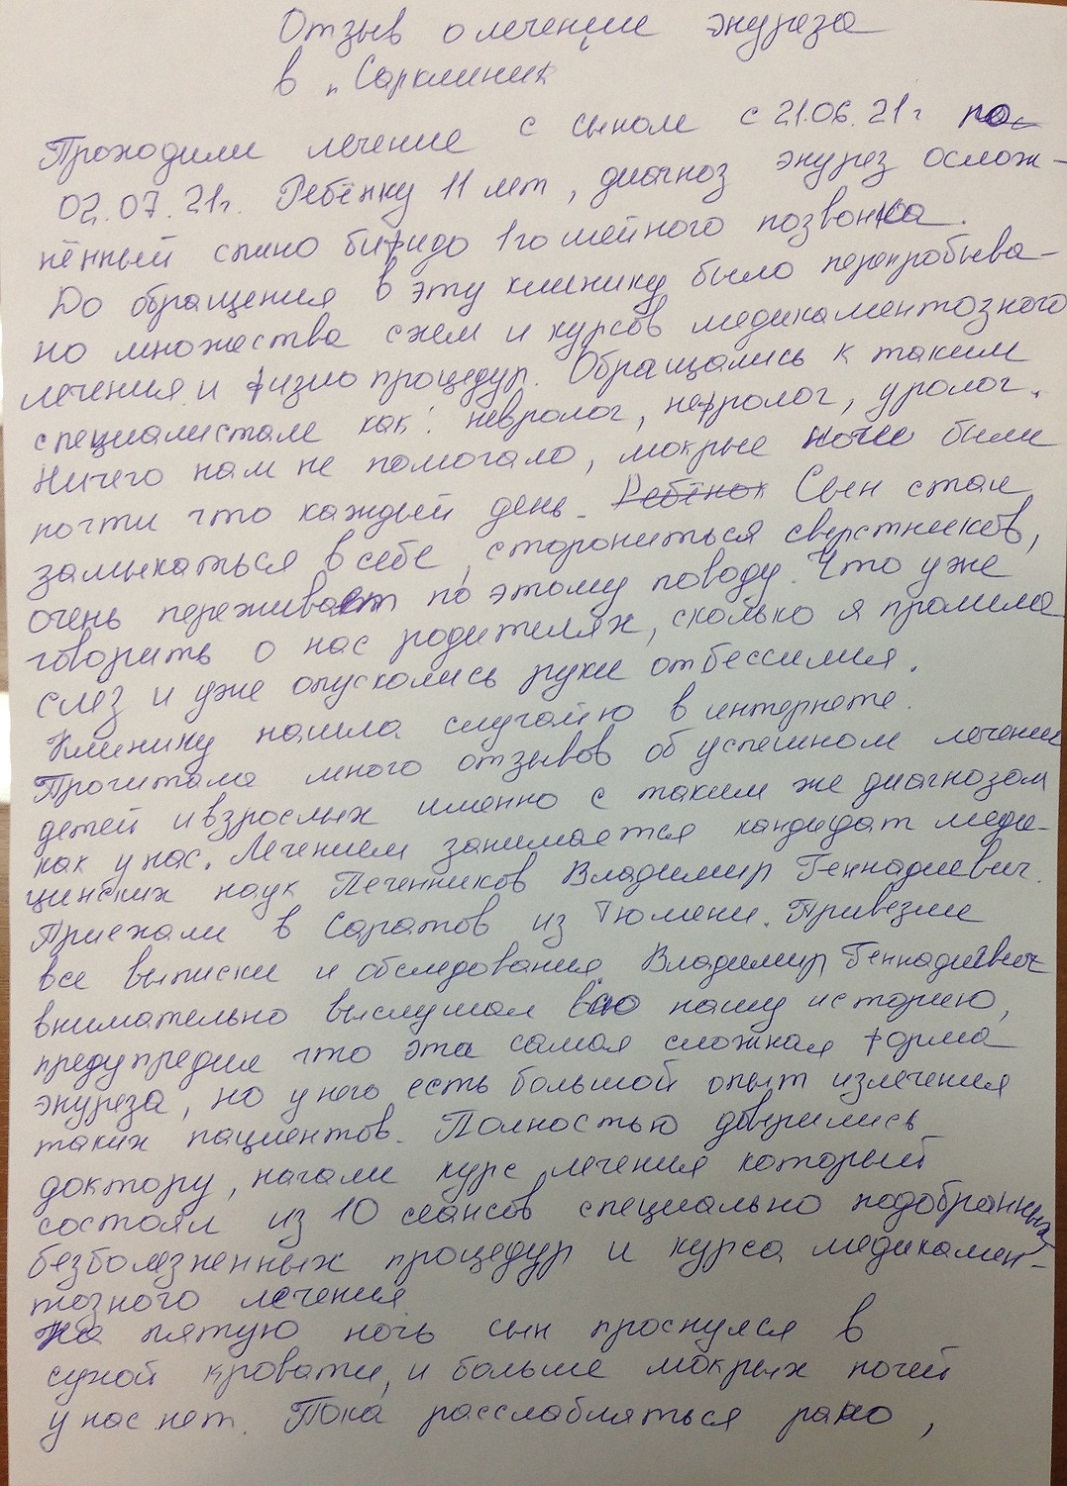 Отзыв о лечении энуреза
в „Сарклиник
Проходили лечение с сыном с 21.06.21г по
02.07.21г. Ребёнку 11 лет, диагноз энурез ослож-
нённый спино бифидо 1го шейного позвонка.
До обращения в эту клинику было перепробыва-
но множества схем и курсов медикаментозного
лечения и физио процедур. Обращались к таким
специалистам как: невролог, нефролог, уролог.
Ничего нам не помогало, мокрые ночи были
почти что каждый день. Ребёнок Сын стал
замыкаться в себе, сторониться сверстников,
очень переживает по этому поводу. Что уже
говорить о нас родителях, сколько я пролила
слез и уже опускались руки от бессилия.
Клинику нашла случайно в интернете.
Прочитала много отзывов об успешном лечении
детей и взрослых именно с таким же диагнозом
как у нас. Лечением занимается кандидат меди-
цинских наук Печенников Владимир Геннадиевич.
Приехали в Саратов из Тюмени. Привезли
все выписки и обследования. Владимир Геннадиевич
внимательно выслушал всю нашу историю,
предупредил что эта самая сложная форма
энуреза, но у него есть большой опыт излечения
таких пациентов. Полностью доверились
доктору, начали курс лечения который
состоял из 10 сеансов специально подобранных
безболезненных процедур и курса медикамен-
тозного лечения.
На пятую ночь сын проснулся в
сухой кровати, и больше мокрых ночей
у нас нет. Пока расслабляться рано,